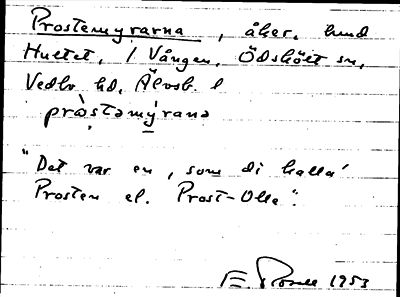 Prostemyrarna, åker, hund
Hultet, / Vången, Ödskölt sn,
Vedbo hd, Älvsb. l
pròstamýrana
"Det var en, som di kalla'
Prosten el. Prost-Olle".
1953